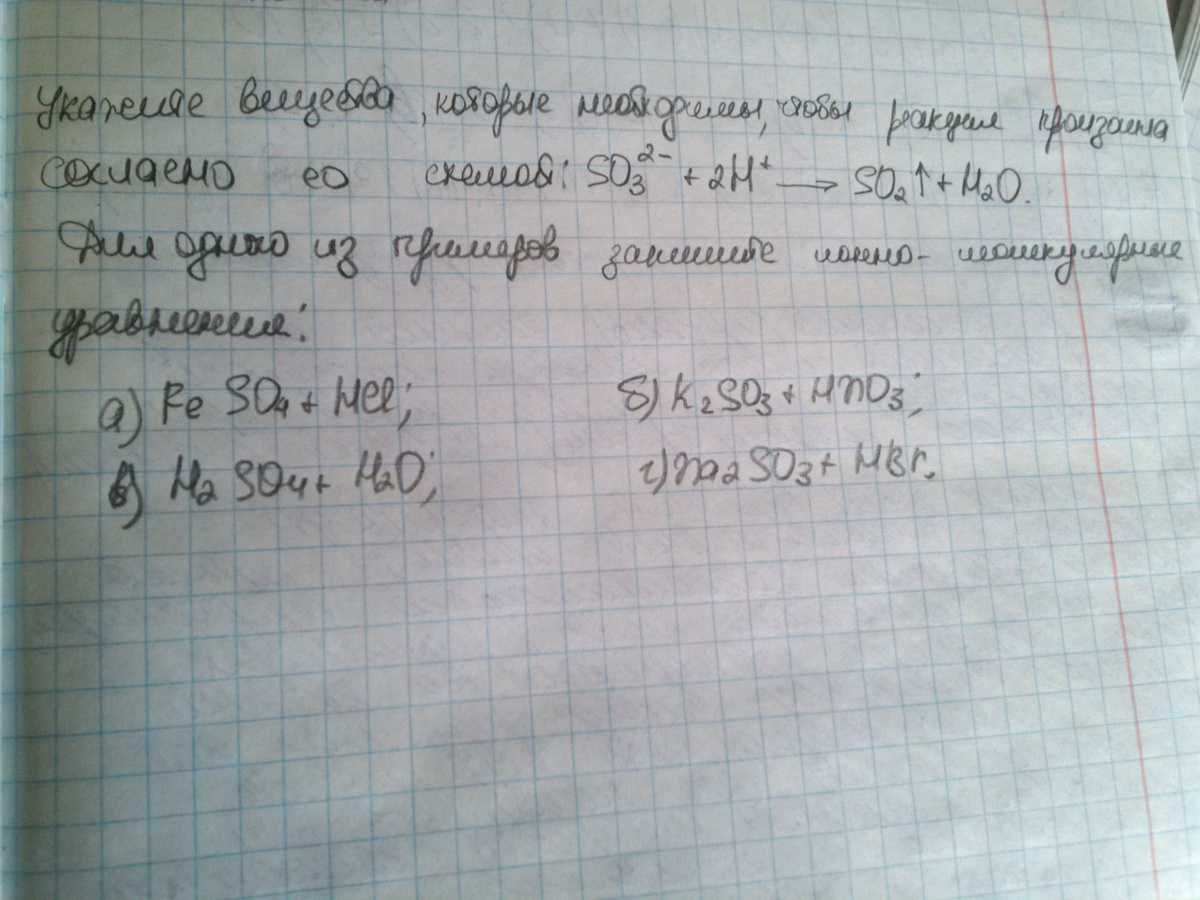 Укажите вещества, которые необходимы, чтобы реакция произошла
согласно со схемой: SO₃²⁻ + 2H⁺ → SO₂↑ + H₂O.
Для одного из примеров запишите ионно-молекулярные
уравнения:
а) FeSO₄ + HCl; б) K₂SO₃ + HNO₃;
в) H₂SO₄ + H₂O; г) Na₂SO₃ + HBr.